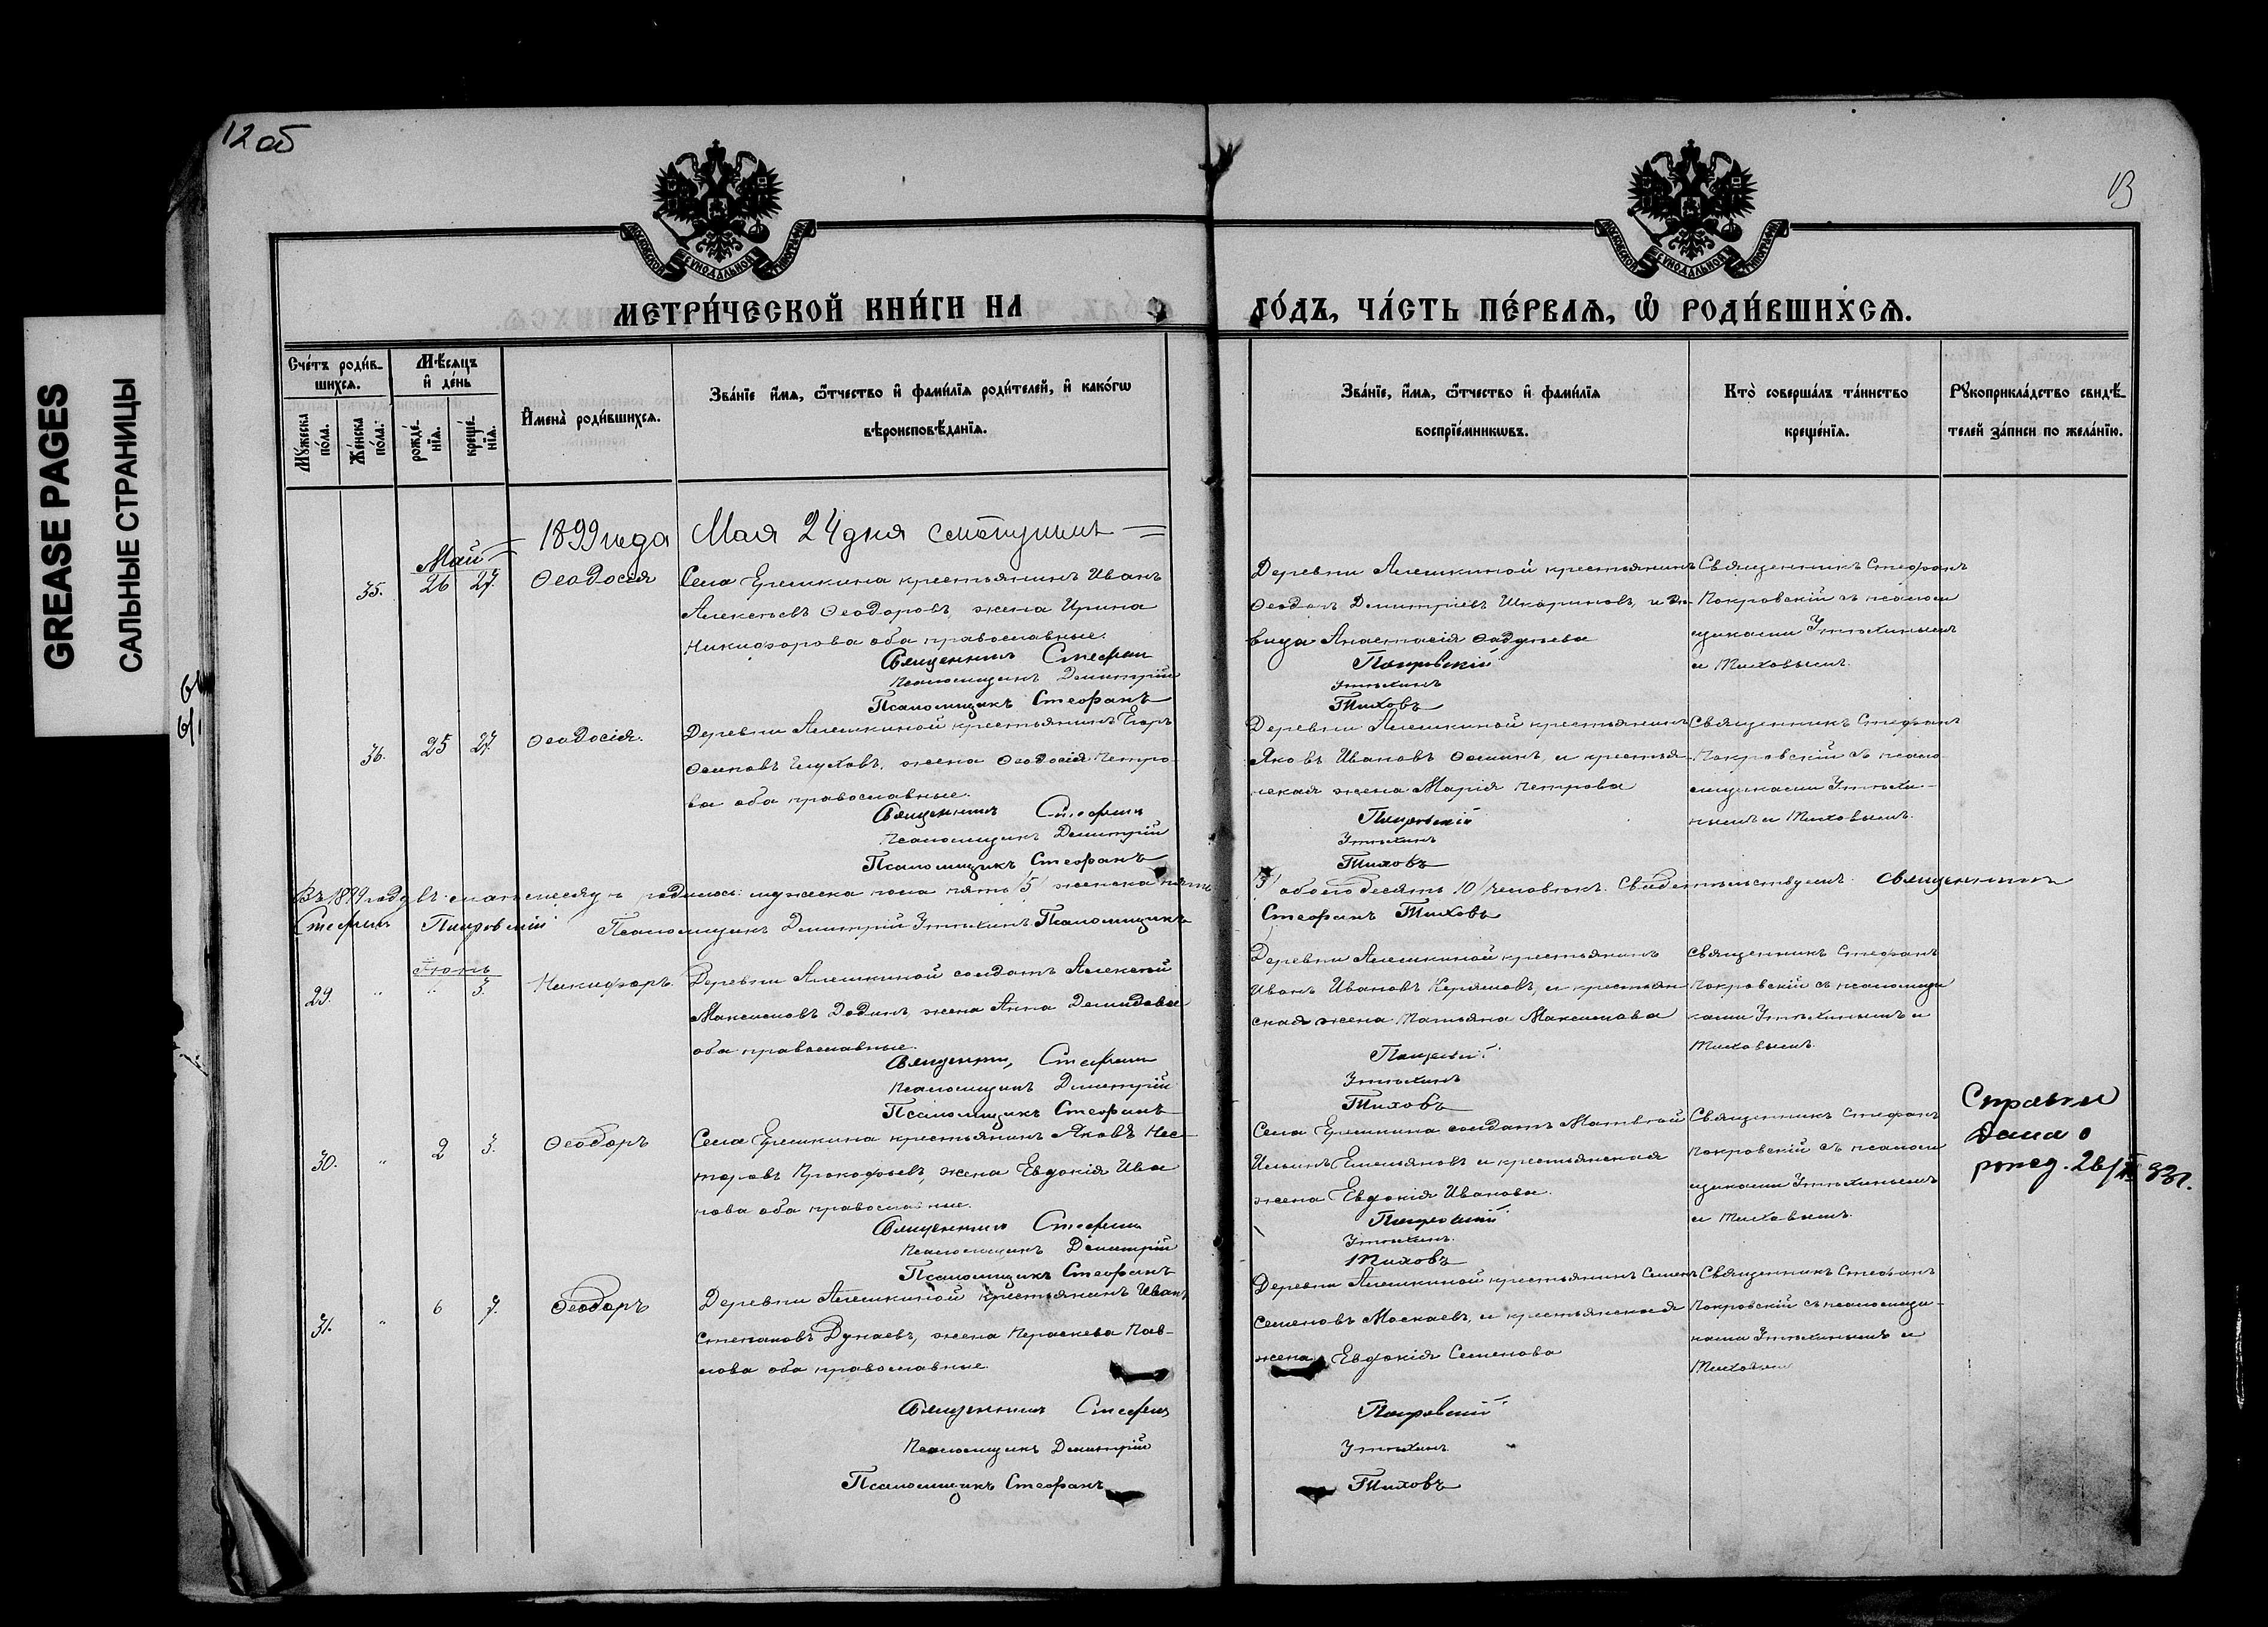 GREASE PAGES
САЛЬНЫЕ СТРАНИЦЫ
12 об
13
МЕТРИ́ЧЕСКОЙ КНИ́ГИ НА
ГО́ДЪ, ЧА́СТЬ ПЕ́РВАѦ, Ѡ҆ РОДИ́ВШИХСѦ.
Сче́тъ роди́в-
шихсѧ.
Мꙋ́жеска по́ла.
Же́нска по́ла.
Мѣ́сѧцъ
и҆ де́нь
рожде́нїѧ.
креще́нїѧ.
И҆мена̀ роди́вшихсѧ.
Зва́нїе и҆́мѧ, ѻ҆́тчество и҆ фами́лїѧ роди́телей, и҆ како́гѡ
вѣроисповѣ́данїѧ.
Зва́нїе, и҆́мѧ, ѻ҆́тчество и҆ фами́лїѧ
воспрїе́мникѡвъ.
Кто̀ соверша́лъ та́инство
креще́нїѧ.
Рꙋкоприкла́дство свидѣ́-
телей за́писи по жела́нїю.
1899 года Мая 24 дня
Май
35. 26 27. Ѳеодосія
Села Ерешкина крестьянинъ Иванъ
Алексѣевъ Ѳеодоровъ, жена Ирина
Никифорова оба православные.
Священникъ Стефан
Псаломщикъ Димитрій
Псаломщикъ Стефанъ
Деревни Алешкиной крестьянинъ
Ѳеодоръ Димитріевъ и дѣ-
вица Анастасія
Покровскій
Утѣхинъ
Тиховъ
Священникъ Стефанъ
Покровскій съ псалом
щиками Утѣхинымъ
и Тиховымъ.
36. 25 27 Ѳеодосія.
Деревни Алешкиной крестьянинъ Егоръ
Осиповъ Глуховъ, жена Ѳеодосія Петро-
ва оба православные.
Священникъ Стефанъ
Псаломщикъ Димитрій
Псаломщикъ Стефанъ
Деревни Алешкиной крестьянинъ
Яковъ Ивановъ и крестьян-
ская жена Марія Петрова
Покровскій
Утѣхинъ
Тиховъ
Священникъ Стефанъ
Покровскій съ псало-
мщиками Утѣхи-
нымъ и Тиховымъ.
Въ 1899 году въ маѣ мѣсяцѣ родилось: мужеска пола пять /5/ женска пять
/5/ обоего десять 10 /человѣкъ. Свидѣтельствуемъ: Священникъ
Стефанъ Покровскій Псаломщикъ Димитрій Утѣхинъ Псаломщикъ
Стефанъ Тиховъ
Іюнь
29. " " 3. Никифоръ.
Деревни Алешкиной солдатъ Алексѣй
Максимовъ Додинъ, жена Анна Демидова
оба православные.
Священникъ Стефан
Псаломщикъ Димитрій
Псаломщикъ Стефанъ
Деревни Алешкиной крестьянинъ
Иванъ Ивановъ и крестьян
ская жена Татьяна Максимова
Покровскій
Утѣхинъ
Тиховъ
Священникъ Стефанъ
Покровскій съ псаломщи
ками Утѣхинымъ и
Тиховымъ.
30. " 2 3. Ѳеодоръ
Села Ерешкина крестьянинъ Яковъ Нес-
торовъ Прокофьевъ, жена Евдокія Ива
нова оба православные.
Священникъ Стефан
Псаломщикъ Димитрій
Псаломщикъ Стефанъ
Села Ерешкина солдатъ Матвѣй
Ильинъ Емельяновъ и крестьянская
жена Евдокія Иванова.
Покровскій
Утѣхинъ.
Тиховъ
Священникъ Стефанъ
Покровскій съ псалом
щиками Утѣхинымъ
и Тиховымъ.
Справка
дана о
рожд. 26/ 33г.
31. " 6 7. Ѳеодоръ
Деревни Алешкиной крестьянинъ Иванъ
Степановъ Дунаевъ, жена Параскева Пав-
лова оба православные.
Священникъ Стефан
Псаломщикъ Димитрій
Псаломщикъ Стефанъ
Деревни Алешкиной крестьянинъ Семенъ
Семеновъ Москаевъ, и крестьянская
жена Евдокія Семенова
Покровскій
Утѣхинъ
Тиховъ
Священникъ Стефанъ
Покровскій съ псаломщи-
ками Утѣхинымъ и
Тиховымъ